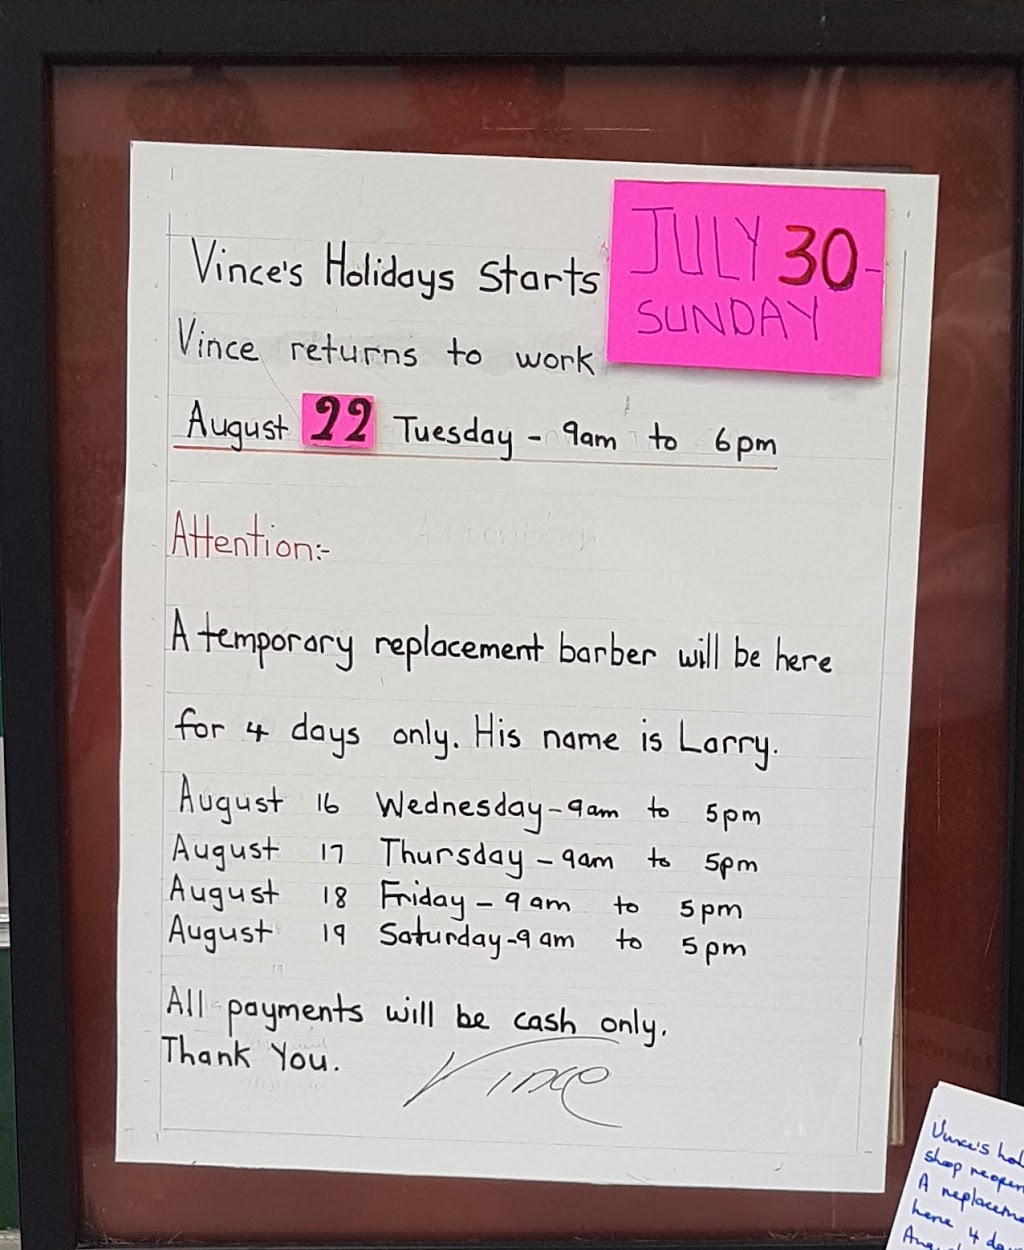 Vince's Holidays Starts JULY 30 - SUNDAY
Vince returns to work
August 22 Tuesday - 9am to 6pm
Attention:-
A temporary replacement barber will be here
for 4 days only. His name is Larry.
August 16 Wednesday - 9am to 5pm
August 17 Thursday - 9am to 5pm
August 18 Friday - 9am to 5pm
August 19 Saturday - 9am to 5pm
All payments will be cash only.
Thank You. Vince
Vince's hol
shop reopen
A replaceme
here 4 da